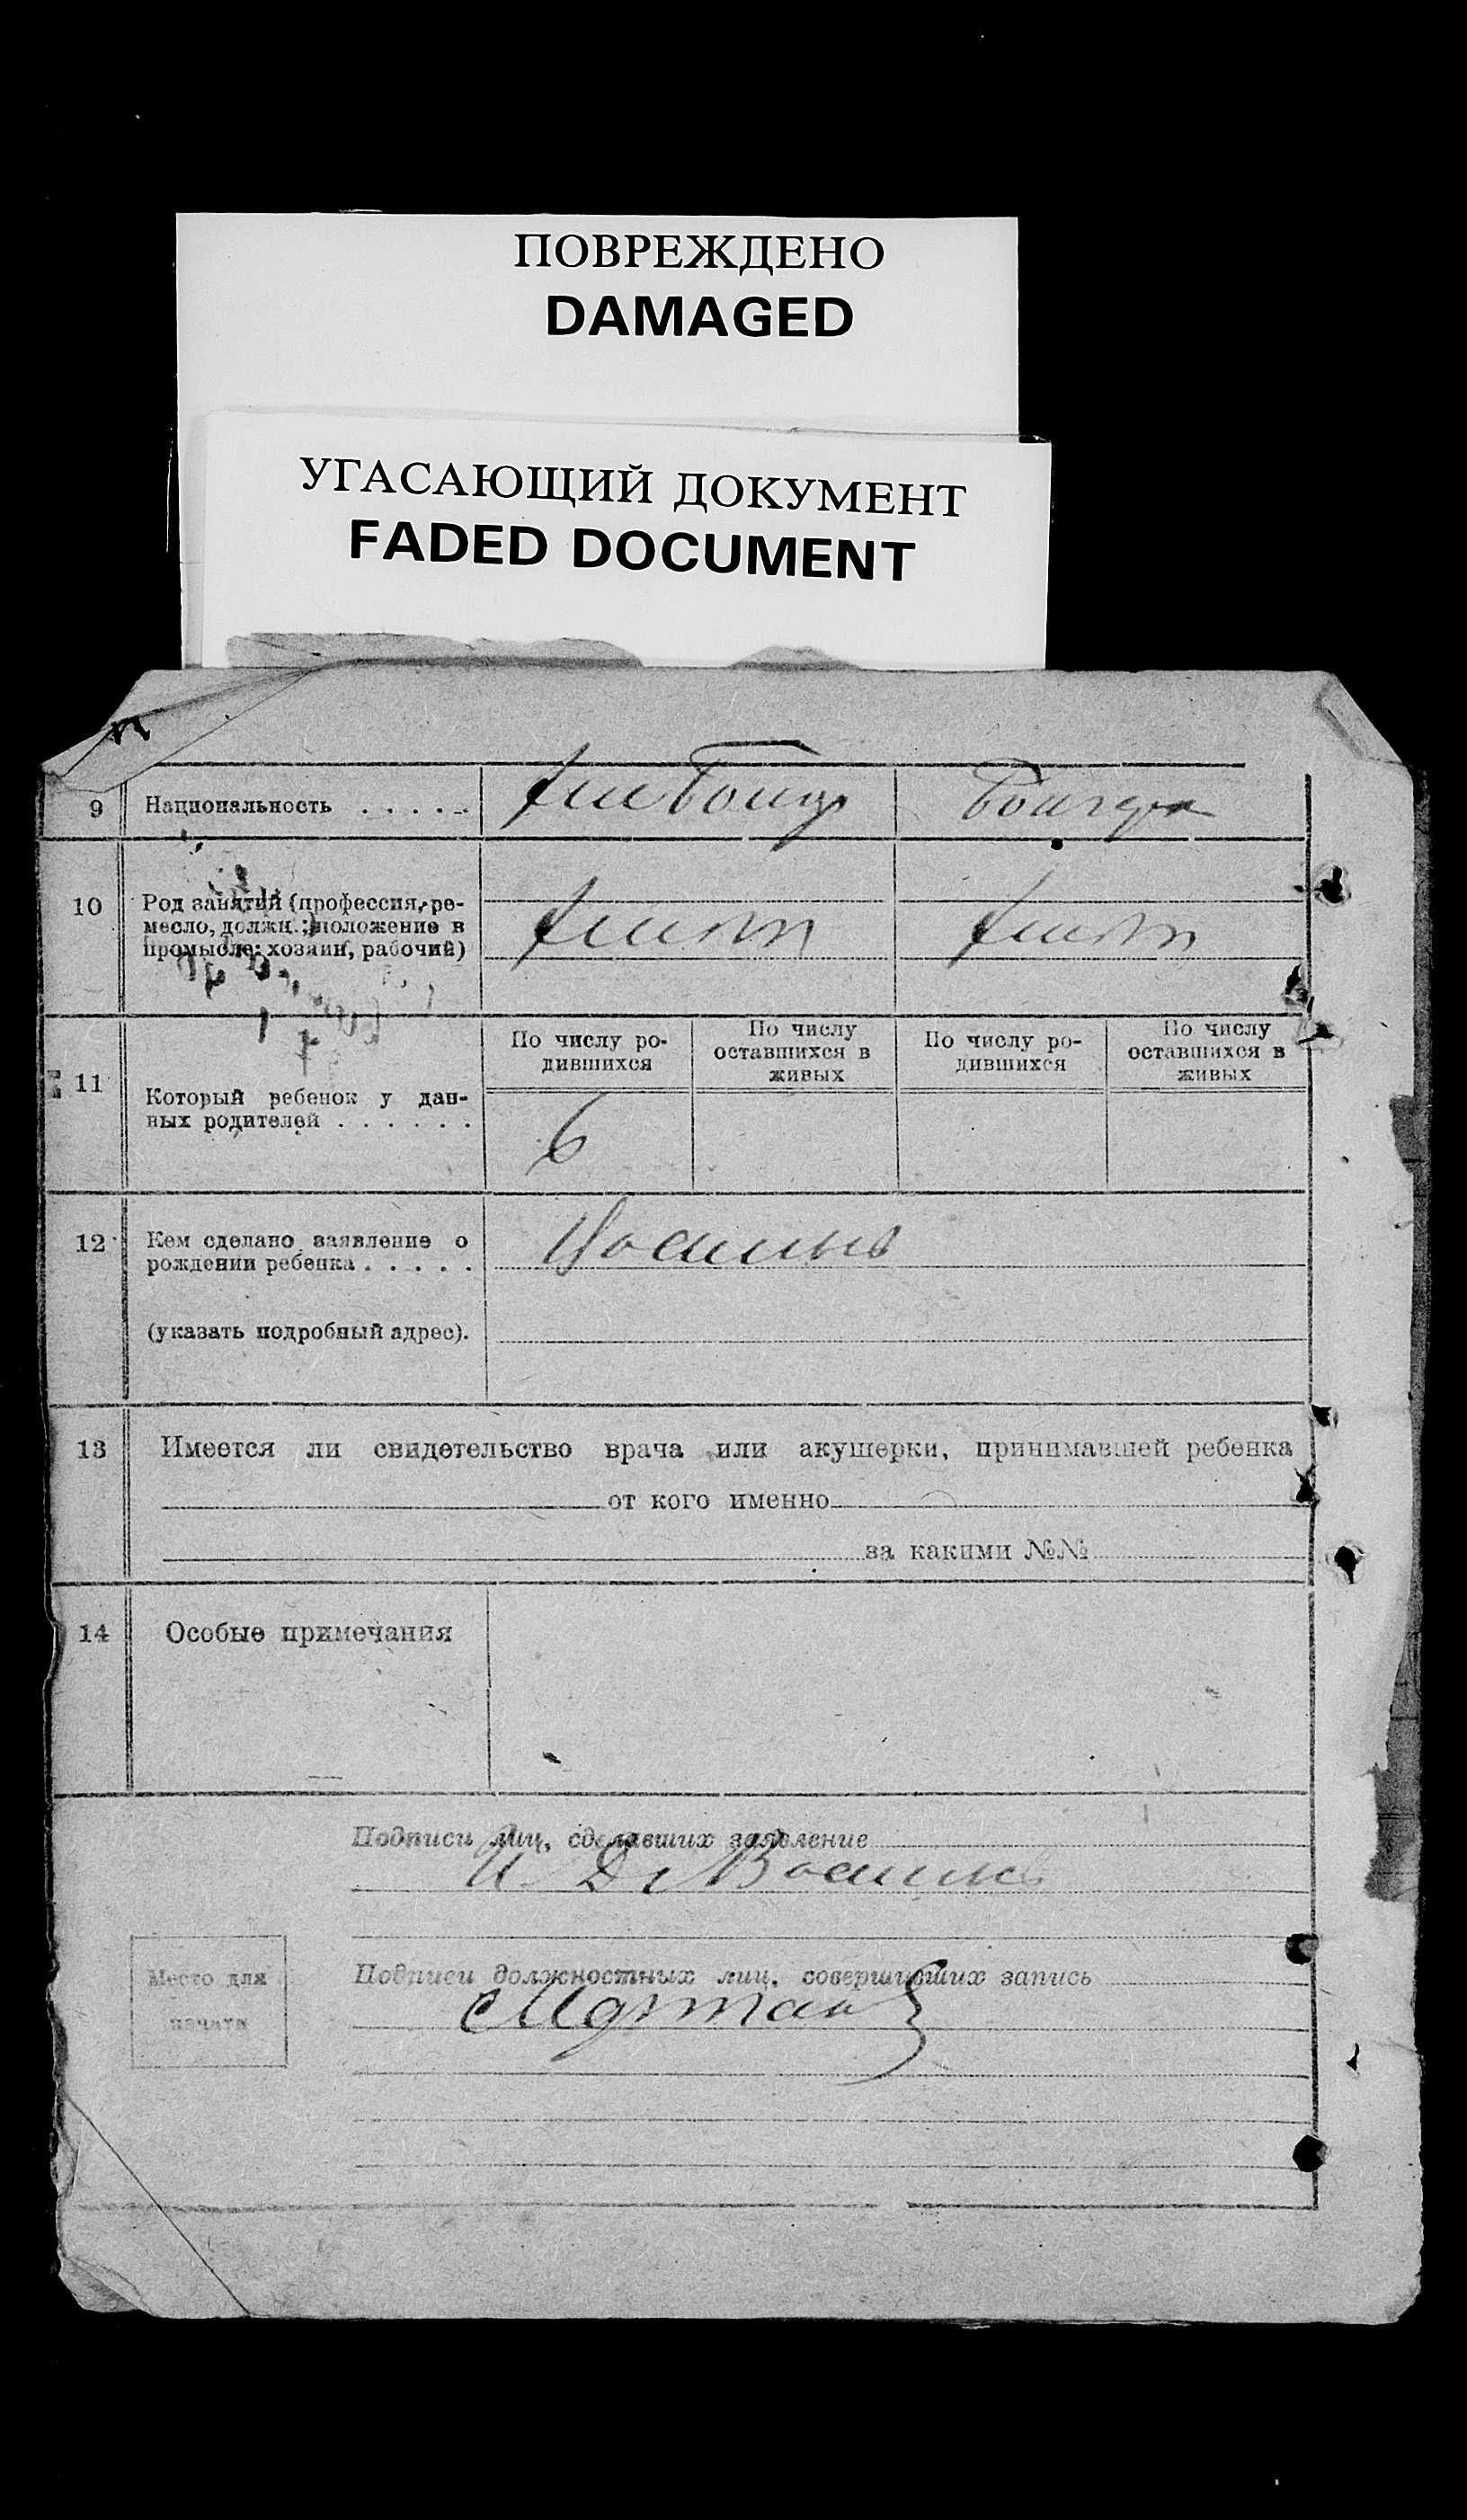 ПОВРЕЖДЕНО
DAMAGED
УГАСАЮЩИЙ ДОКУМЕНТ
FADED DOCUMENT
9 Национальность . . . . .
10 Род занятий (профессия, ре-
месло, должн.; положение в
промысле: хозяин, рабочий)
По числу ро-
дившихся
По числу
оставшихся в
живых
По числу ро-
дившихся
По числу
оставшихся в
живых
11 Который ребенок у дан-
ных родителей . . . . . .
6
12 Кем сделано заявление о
рождении ребенка . . . . .
(указать подробный адрес).
13 Имеется ли свидетельство врача или акушерки, принимавшей ребенка
от кого именно
за какими №№
14 Особые примечания
Подписи лиц, сделавших заявление
Место для
печати
Подписи должностных лиц, совершивших запись